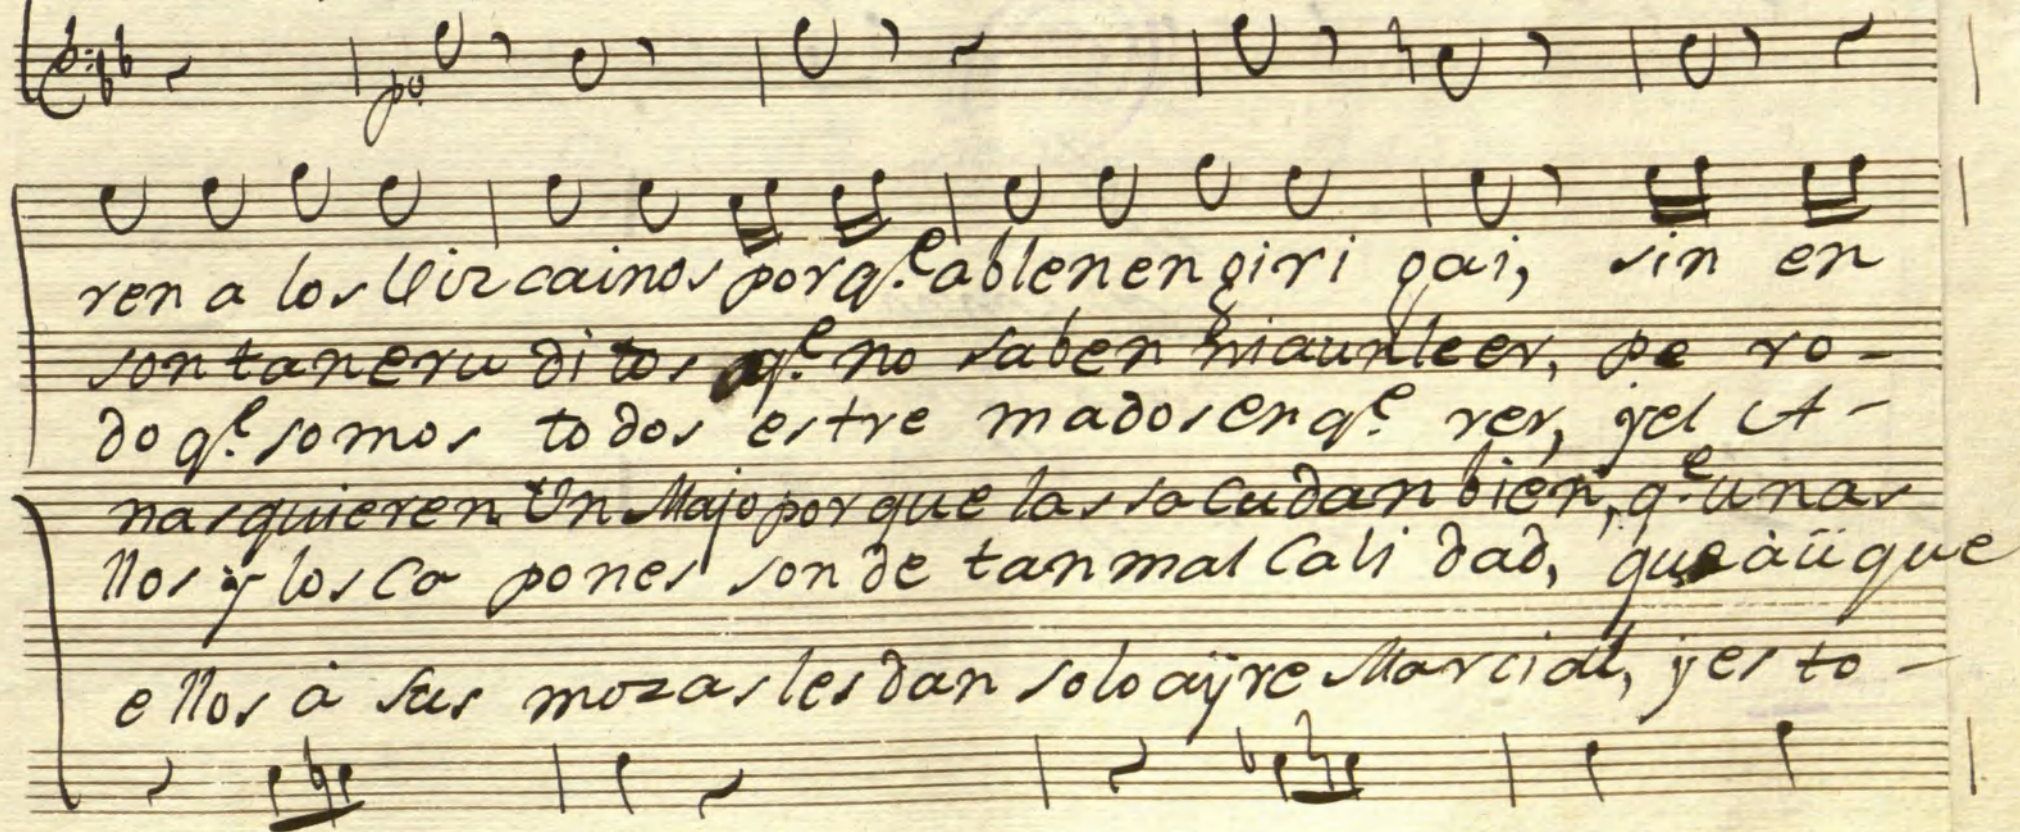 po
ren a los Vizcainos porq.e ablen en giri gai, sin en
son tan eru di tos q.e no saben ni aun leer, pe ro-
do q.e somos todos estre mados en q.e rer, y el A-
nas quieren Un Majo por que las sa Cudan bien, q.e unas
llos y los Ca pones son de tan mal Cali dad, que aūque
e llos à sus mozas les dan solo ayre Marcial, y es to-